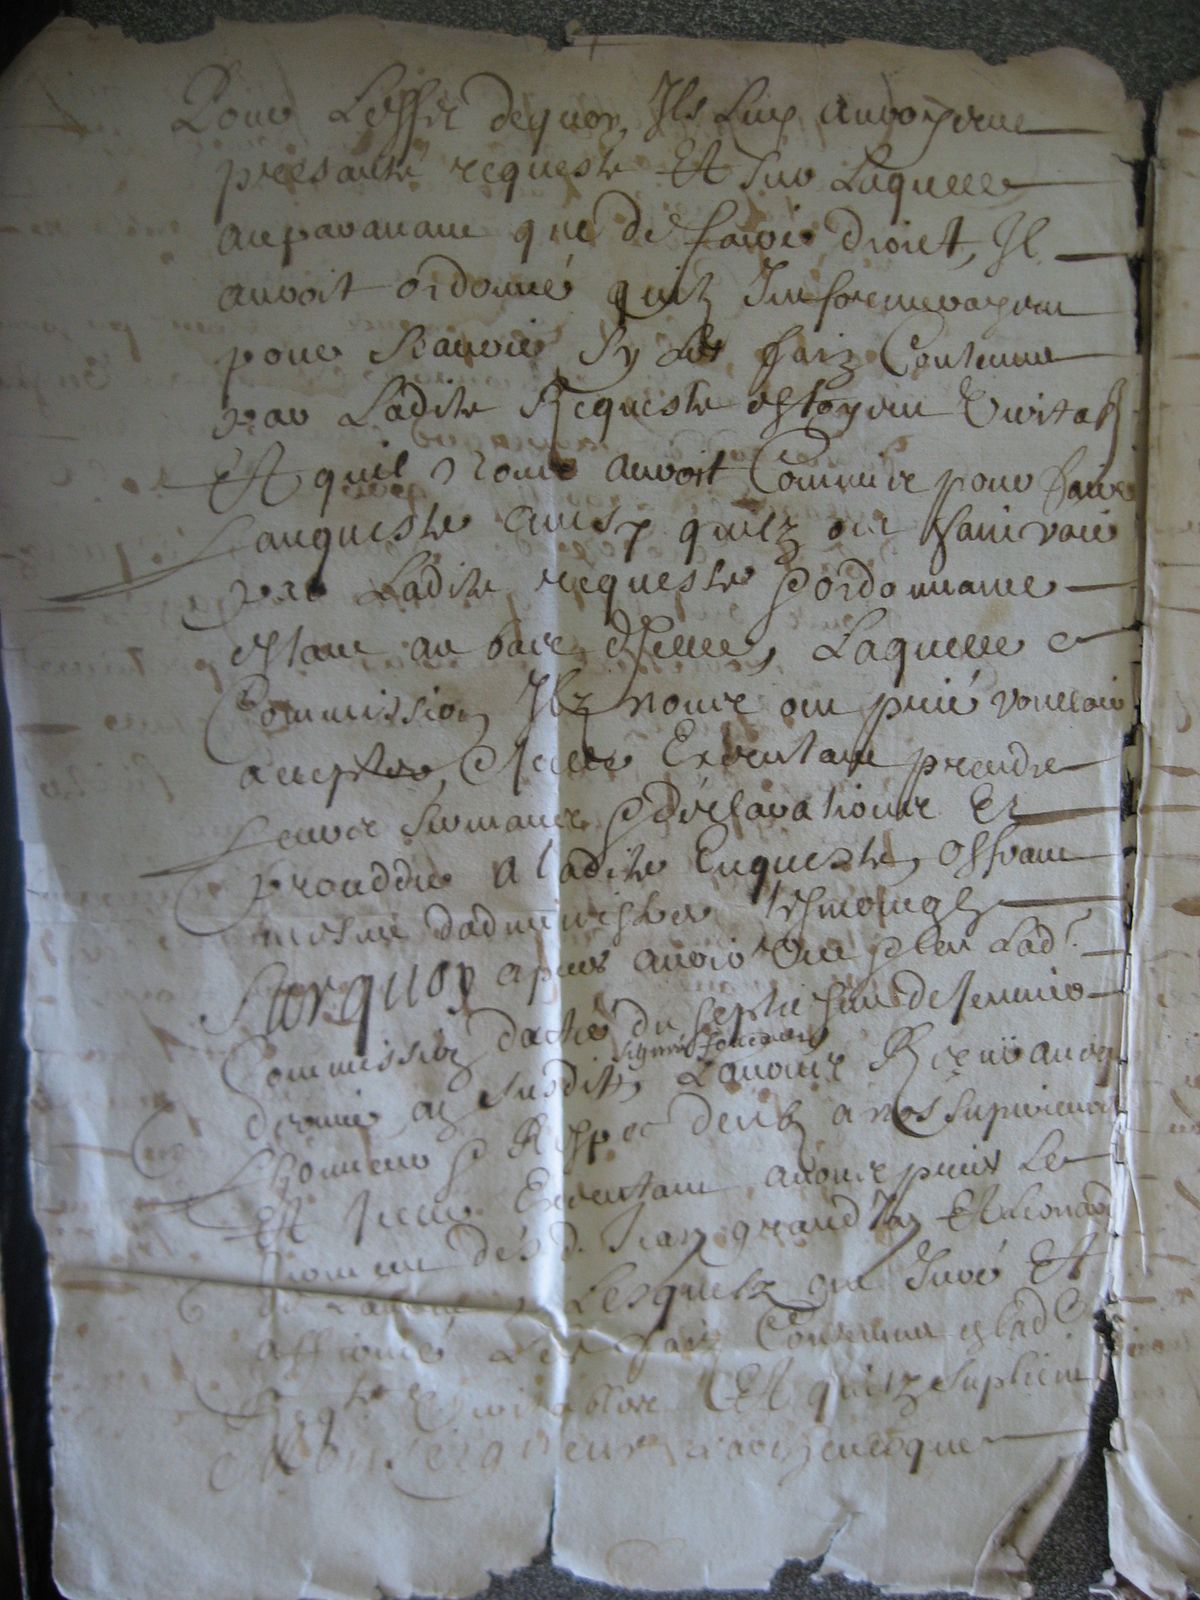 Pour Leffect dequoy, Ils Luy auroyent
presanté requeste Et sur Laquelle
auparavant que de faire droict, Il
auroit ordonné quilz Informeroyent
pour scavoir sy Les faiz Contenus
par Ladite Requeste estoyent veritab
Et quil nous auroit Commis pour faire
Lanqueste ainsy quilz ont faict voir
par Ladite requeste & ordonnance
estant au bas dicelle, Laquelle
Commission Ilz nous ont prié vouloir
accepter, & Icelle Executant prendre
Leurs sermans & declarations Et
proceder a ladite Enqueste, offrant
mesme dadministrer tesmoingz
Surquoy apres avoir veu & leu Lad.
Commission dactée du septie Jour de Janvier
dernier signée
au susdit, Lavons Receü avec
Lhonneur & Respec deubz a nos superieurs
Et Icelle Executant avons pris Le
serment desd. Jean grand Jan Et Leonard
Lesquelz ont Juré Et
affirmé Les faiz Contenus en Lad.
Reqte veritables Et quilz suplient
Monseigneur